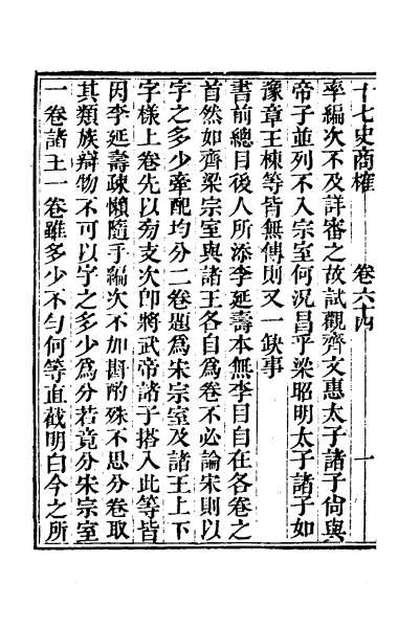 十七史商榷 卷六十四 一
率編次不及詳審之故試觀齊文惠太子諸子尙與
帝子並列不入宗室何況昌乎梁昭明太子諸子如
豫章王棟等皆無傳則又一缺事
書前總目後人所添李延壽本無李目自在各卷之
首然如齊梁宗室與諸王各自爲卷不必論宋則以
字之多少牽配均分二卷題爲宋宗室及諸王上下
字樣上卷先以旁支次卽將武帝諸子搭入此等皆
因李延壽疎懶隨手編次不加斟酌殊不思分卷取
其類族辯物不可以字之多少爲分若竟分宋宗室
一卷諸王一卷雖多少不勻何等直截明白今之所